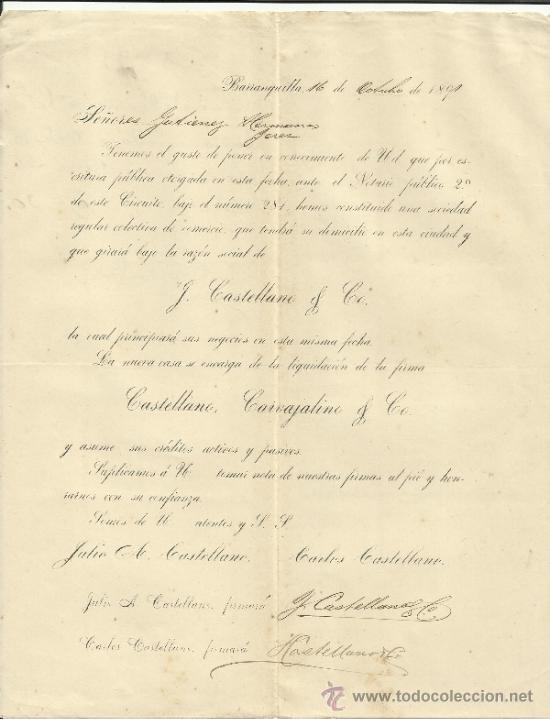 Barranquilla 16 de Octubre de 1891
Señores Gutierrez Hermanos
Jerez
Tenemos el gusto de poner en conocimiento de Ud que por es-
critura pública otorgada en esta fecha, ante el Notario público 2º
de este Circuito, bajo el número 281, hemos constituido una sociedad
regular colectiva de comercio, que tendrá su domicilio en esta ciudad y
que girará bajo la razón social de
J. Castellano & Co.
la cual principiará sus negocios en esta misma fecha.
La nueva casa se encarga de la liquidación de la firma
Castellano, Carvajalino & Co.
y asume sus créditos activos y pasivos.
Suplicamos á U tomar nota de nuestras firmas al pié y hon-
rarnos con su confianza.
Somos de U atentos y S. S.
Julio A. Castellano. Carlos Castellano.
Julio A Castellano, firmará J. Castellano & Co
Carlos Castellano, firmará J. Castellano & Co
www.todocoleccion.net